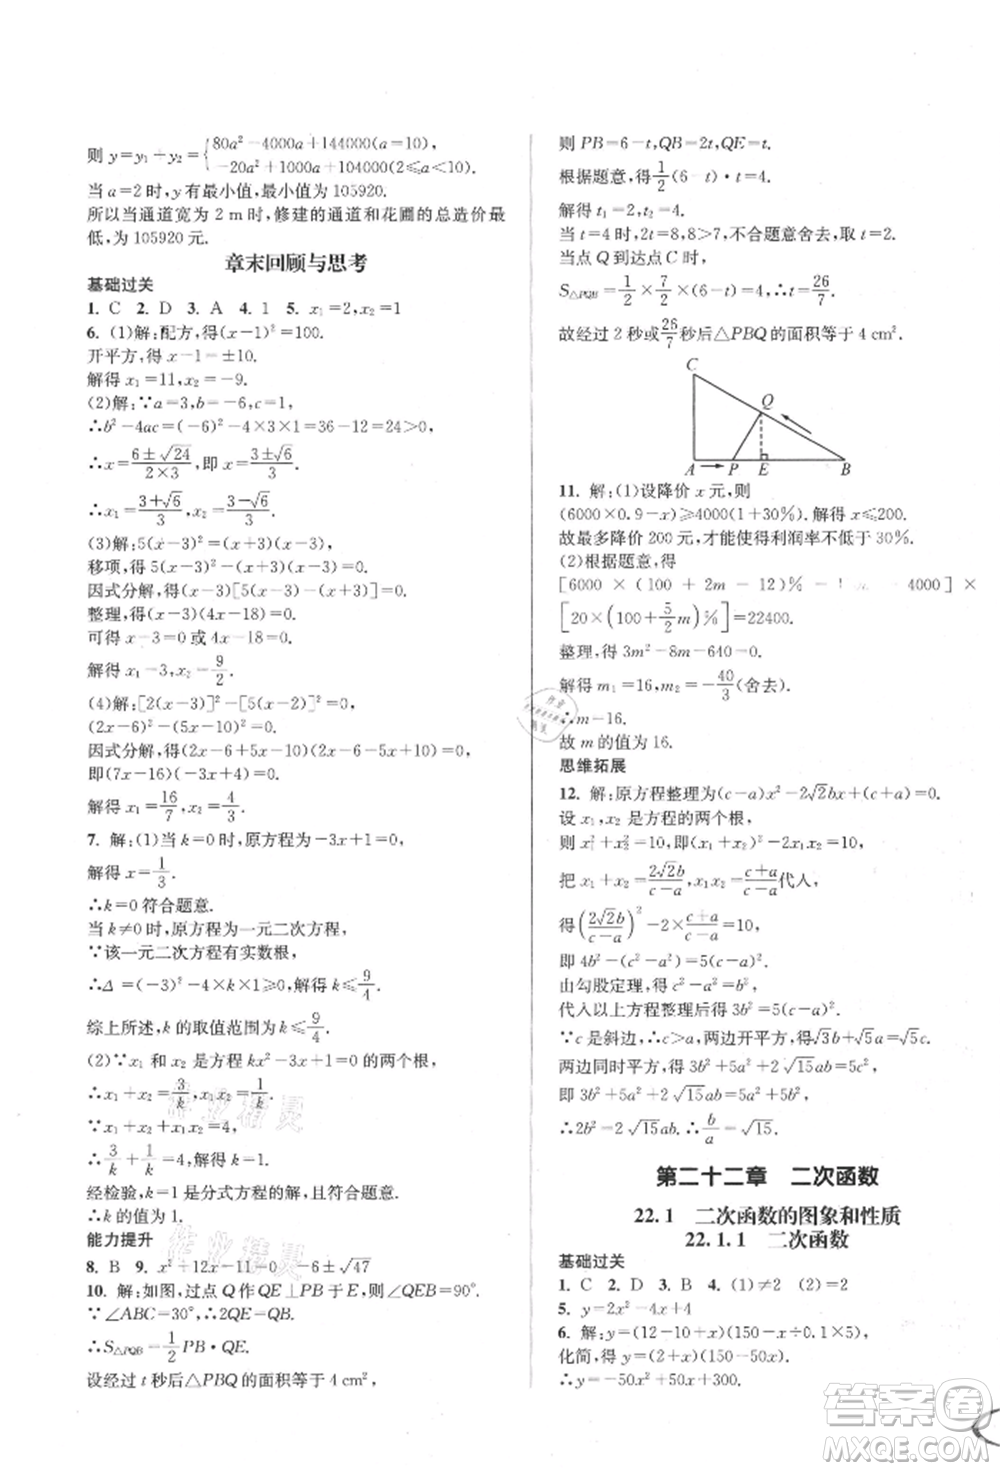 则 y=y₁+y₂={80a²-4000a+144000(a=10),
-20a²+1000a+104000(2⩽a<10).
当 a=2时,y有最小值,最小值为105920.
所以当通道宽为 2 m 时,修建的通道和花圃的总造价最
低,为 105920元.
章末回顾与思考
基础过关
1. C 2. D 3. A 4. 1 5. x₁=2,x₂=1
6. (1)解:配方,得(x-1)²=100.
开平方,得 x-1=±10.
解得 x₁=11,x₂=-9.
(2)解:∵a=3,b=-6,c=1,
∴b²-4ac=(-6)²-4×3×1=36-12=24>0,
∴x=(6±√24)/(2×3),即 x=(3±√6)/3.
∴x₁=(3+√6)/3,x₂=(3-√6)/3.
(3)解:5(x-3)²=x(x-3),
移项,得 5(x-3)²-x(x-3)=0.
因式分解,得(x-3)[5(x-3)-x]=0.
整理,得(x-3)(4x-18)=0.
可得 x-3=0 或 4x-18=0.
解得 x₁=3,x₂=9/2.
(4)解:[2(x-3)]²-[5(x-2)]²=0,
(2x-6)²-(5x-10)²=0.
因式分解,得(2x-6+5x-10)(2x-6-5x+10)=0,
即(7x-16)(-3x+4)=0.
解得 x₁=16/7,x₂=4/3.
7. 解:(1)当 k=0 时,原方程为-3x+1=0,
解得 x=1/3.
∴k=0 符合题意.
当 k≠0 时,原方程为一元二次方程,
∵该一元二次方程有实数根,
∴Δ=(-3)²-4×k×1⩾0,解得 k⩽9/4.
综上所述,k 的取值范围为 k⩽9/4.
(2)∵x₁ 和 x₂ 是方程 kx²-3x+1=0 的两个根,
∴x₁+x₂=3/k,x₁x₂=1/k.
∵x₁+x₂+x₁x₂=4,
∴3/k+1/k=4,解得 k=1.
经检验,k=1 是分式方程的解,且符合题意.
∴k 的值为 1.
能力提升
8. B 9. x²+12x-11=0 -6±√47
10. 解:如图,过点 Q 作 QE⊥PB 于 E,则∠QEB=90°.
∵∠ABC=30°,∴2QE=QB.
∴S△PQB=1/2 PB·QE.
设经过 t 秒后△PBQ 的面积等于 4 cm²,
则 PB=6-t,QB=2t,QE=t.
根据题意,得 1/2(6-t)·t=4.
解得 t₁=2,t₂=4.
当 t=4时,2t=8,8>7,不合题意舍去,取 t=2.
当点 Q 到达点 C 时,
S△PQB=1/2×7/2×(6-t)=4,∴t=26/7.
故经过 2 秒或26/7秒后△PBQ 的面积等于 4 cm².
C
Q
A P E B
11. 解:(1)设降价 x 元,则
(6000×0.9-x)⩾4000(1+30%).解得 x⩽200.
故最多降价 200 元,才能使得利润率不低于 30%.
(2)根据题意,得
[6000 × (100 + 2m - 12)% - 4000] ×
[20×(100+5/2 m)%]=22400.
整理,得 3m²-8m-640=0.
解得 m₁=16,m₂=-40/3(舍去).
∴m=16.
故 m 的值为 16.
思维拓展
12. 解:原方程整理为(c-a)x²-2√2bx+(c+a)=0.
设 x₁,x₂ 是方程的两个根,
则 x₁²+x₂²=10,即(x₁+x₂)²-2x₁x₂=10,
把 x₁+x₂=2√2b/(c-a),x₁x₂=(c+a)/(c-a)代入,
得(2√2b/(c-a))²-2·(c+a)/(c-a)=10,
即 4b²-(c²-a²)=5(c-a)².
由勾股定理,得 c²-a²=b²,
代入以上方程整理后得 3b²=5(c-a)².
∵c 是斜边,∴c>a,两边开平方,得√3b+√5a=√5c.
两边同时平方,得 3b²+5a²+2√15ab=5c²,
即 3b²+5a²+2√15ab=5a²+5b².
∴2b²=2√15ab.∴b/a=√15.
第二十二章 二次函数
22.1 二次函数的图象和性质
22.1.1 二次函数
基础过关
1. C 2. D 3. B 4. (1)≠2 (2)=2
5. y=2x²-4x+4
6. 解:y=(12-10+x)(150-x÷0.1×5),
化简,得 y=(2+x)(150-50x).
∴y=-50x²+50x+300.
作业精灵
作业精灵
答案圈
MXQE.COM